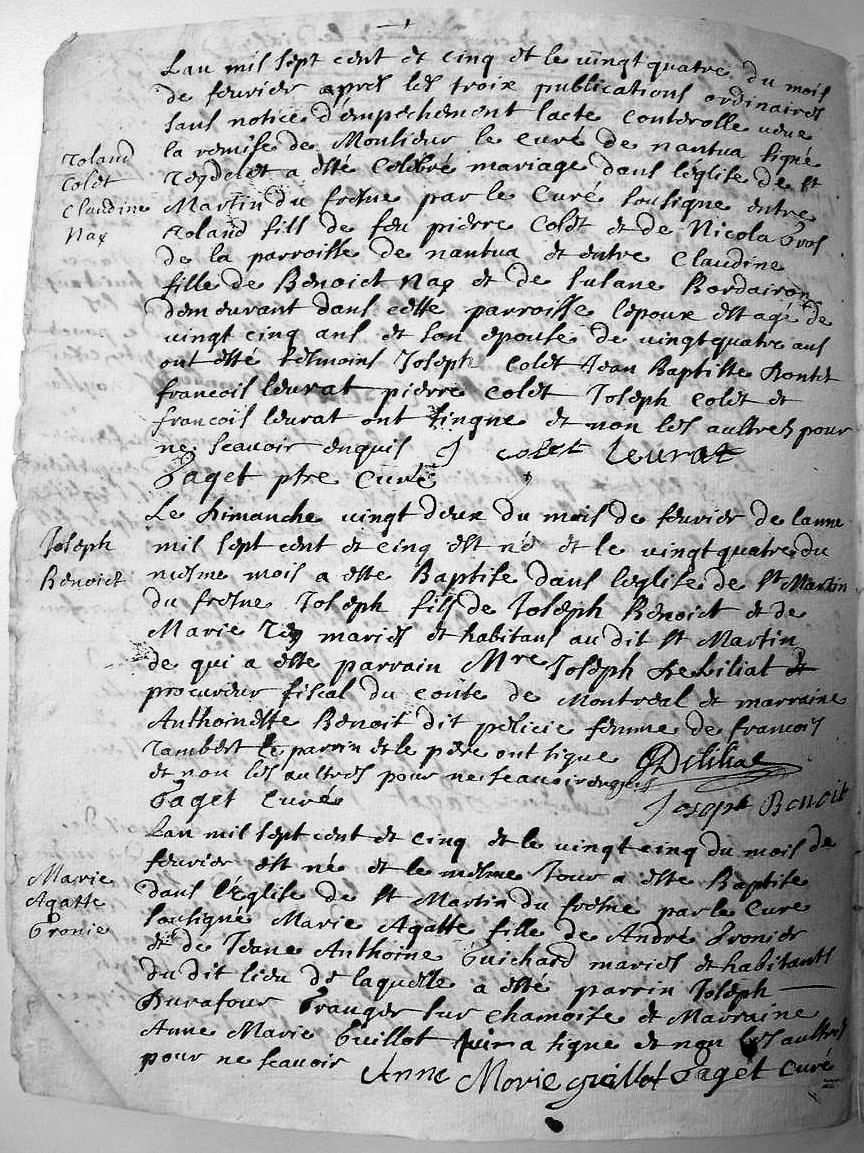 Lan mil sept cent et cinq et le vingtquatre du mois
de feuvrier apres les troix publications ordinaires
sans notice d'empechement lacte controlle veue
la remise de Monsieur le Curé de nantua signé
Reydelet a esté celebré mariage dans léglise de st
Martin du fresne par le Curé soubsigne entre
Roland
Colet
Claudine
Nay
Roland fill de feu pierre Colet et de Nicola
de la parroisse de nantua et entre Claudine
fille de Benoict Nay et de Susane Bordairon
demeurant dans cette parroisse lepoux est agé de
vingt cinq ans et son epouse de vingtquatre ans
ont esté tesmoins Joseph Colet Jean Baptiste
francois leurat pierre Colet Joseph Colet et
francois leurat ont signe et non les aultres pour
ne scavoir enquis J colet leurat
Paget ptre Curé
Le Dimanche vingt deux du mois de feuvrier de lanne
Joseph
Benoict
mil sept cent et cinq est né et le vingtquatre du
mesme mois a esté Baptise dans leglise de St Martin
du fresne Joseph fils de Joseph Benoict et de
Marie Rey mariés et habitans au dit St Martin
de qui a esté parrain Mre Joseph Deliliat et
procureur fiscal du conte de Montreal et marraine
Anthoinette Benoit dit pelicié femme de francois
Tambert le parrin et le père ont signe Deliliat
et non les aultres pour ne scavoir enquis
Paget Curé Joseph Benoit
Lan mil sept cent et cinq et le vingt cinq du mois de
feuvrier est né et le mesme Jour a esté Baptise
Marie
Agatte
Pronié
dans l'Église de St Martin du fresne par le Curé
soubsigne Marie Agatte fille de André Pronier
et de Jeane Anthoine Guichard mariés et habitants
du dit lieu de laquelle a esté parrin Joseph
Durafour Granger sur chamoise et Marraine
Anne Marie Guillot qui a signe et non les aultres
pour ne scavoir Anne Marie guillot Paget Curé